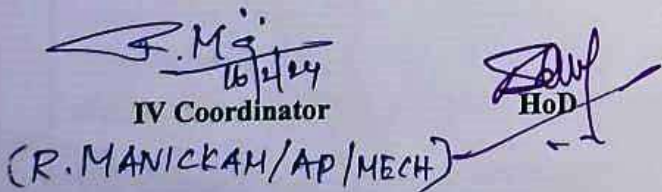 R.M
16/2/24
IV Coordinator
HoD
(R. MANICKAM/AP/MECH)